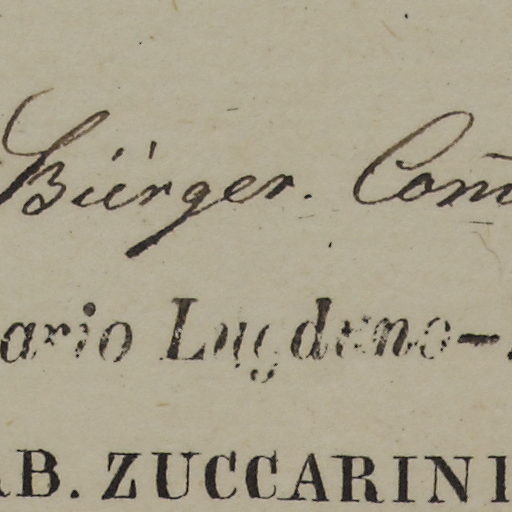 Bürger. Com
ario Lugduno-
B. ZUCCARINI